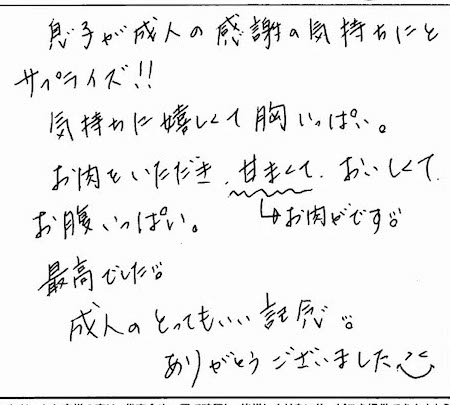 息子が成人の感謝の気持ちにと
サプライズ!!
気持ちに嬉しくて胸いっぱい。
お肉をいただき、甘まくて、おいしくて、
お腹いっぱい。
↳お肉がです。
最高でした。
成人のとってもいい記念。
ありがとうございました